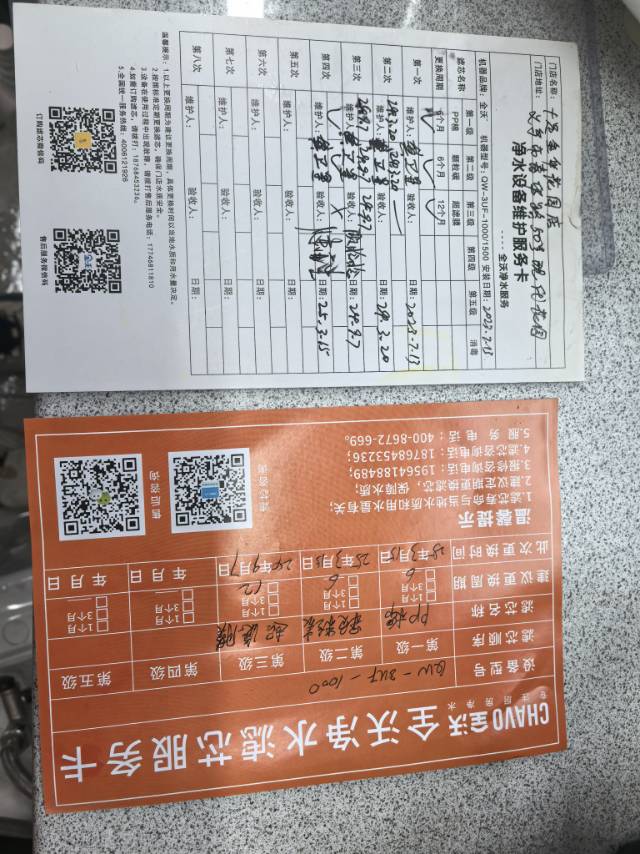 净水设备维护服务卡
-----全沃净水服务
门店名称：
门店地址：
机器品牌：全沃 机器型号：QW-3UF-1000/1500 安装日期：2023.7.13
滤芯名称 第一级 第二级 第三级 第四级 第五级 消毒
PP棉 颗粒碳 超滤膜
更换周期 6个月 6个月 12个月
第一次 维护人： 验收人： 日期：2023.7.13
第二次 24.3.20 24.3.20
维护人： 验收人： 日期：24.3.20
第三次 24.9.7 24.9.7 24.9.7
维护人： 验收人： 日期：24.9.7
第四次 维护人： 验收人： 日期：25.3.15
第五次 维护人： 验收人： 日期：
第六次 维护人： 验收人： 日期：
第七次 维护人： 验收人： 日期：
第八次 维护人： 验收人： 日期：
温馨提示：1.以上更换周期为建议更换周期，具体更换时间以当地水质和用水量决定。
2.按指标准定期更换滤芯，确保门店水质安全。
3.设备在使用过程中出现故障，请拨打售后服务电话：17746811810
4.如需订购滤芯，请拨打：18768453236。
5.全国统一服务热线：4006121926
订购滤芯微信码
售后服务微信码
CHAVO全沃
专注商用净水
全沃净水滤芯服务卡
设备型号 QW-3UF-1000
滤芯顺序 第一级 第二级 第三级 第四级 第五级
滤芯名称 PP棉 颗粒炭 超滤膜
建议更换周期 6 6 12 1个月 3个月 1个月 3个月
此次更换时间 25年3月15日 25年3月15日 24年9月7日 年 月 日 年 月 日
温馨提示
1.滤芯寿命与当地水质和用水量有关；
2.建议定期更换滤芯，保障水质；
3.报修咨询电话：19564188489；
4.滤芯咨询电话：18768453236；
5.服务电话：400-8672-669。
滤芯咨询
售后咨询